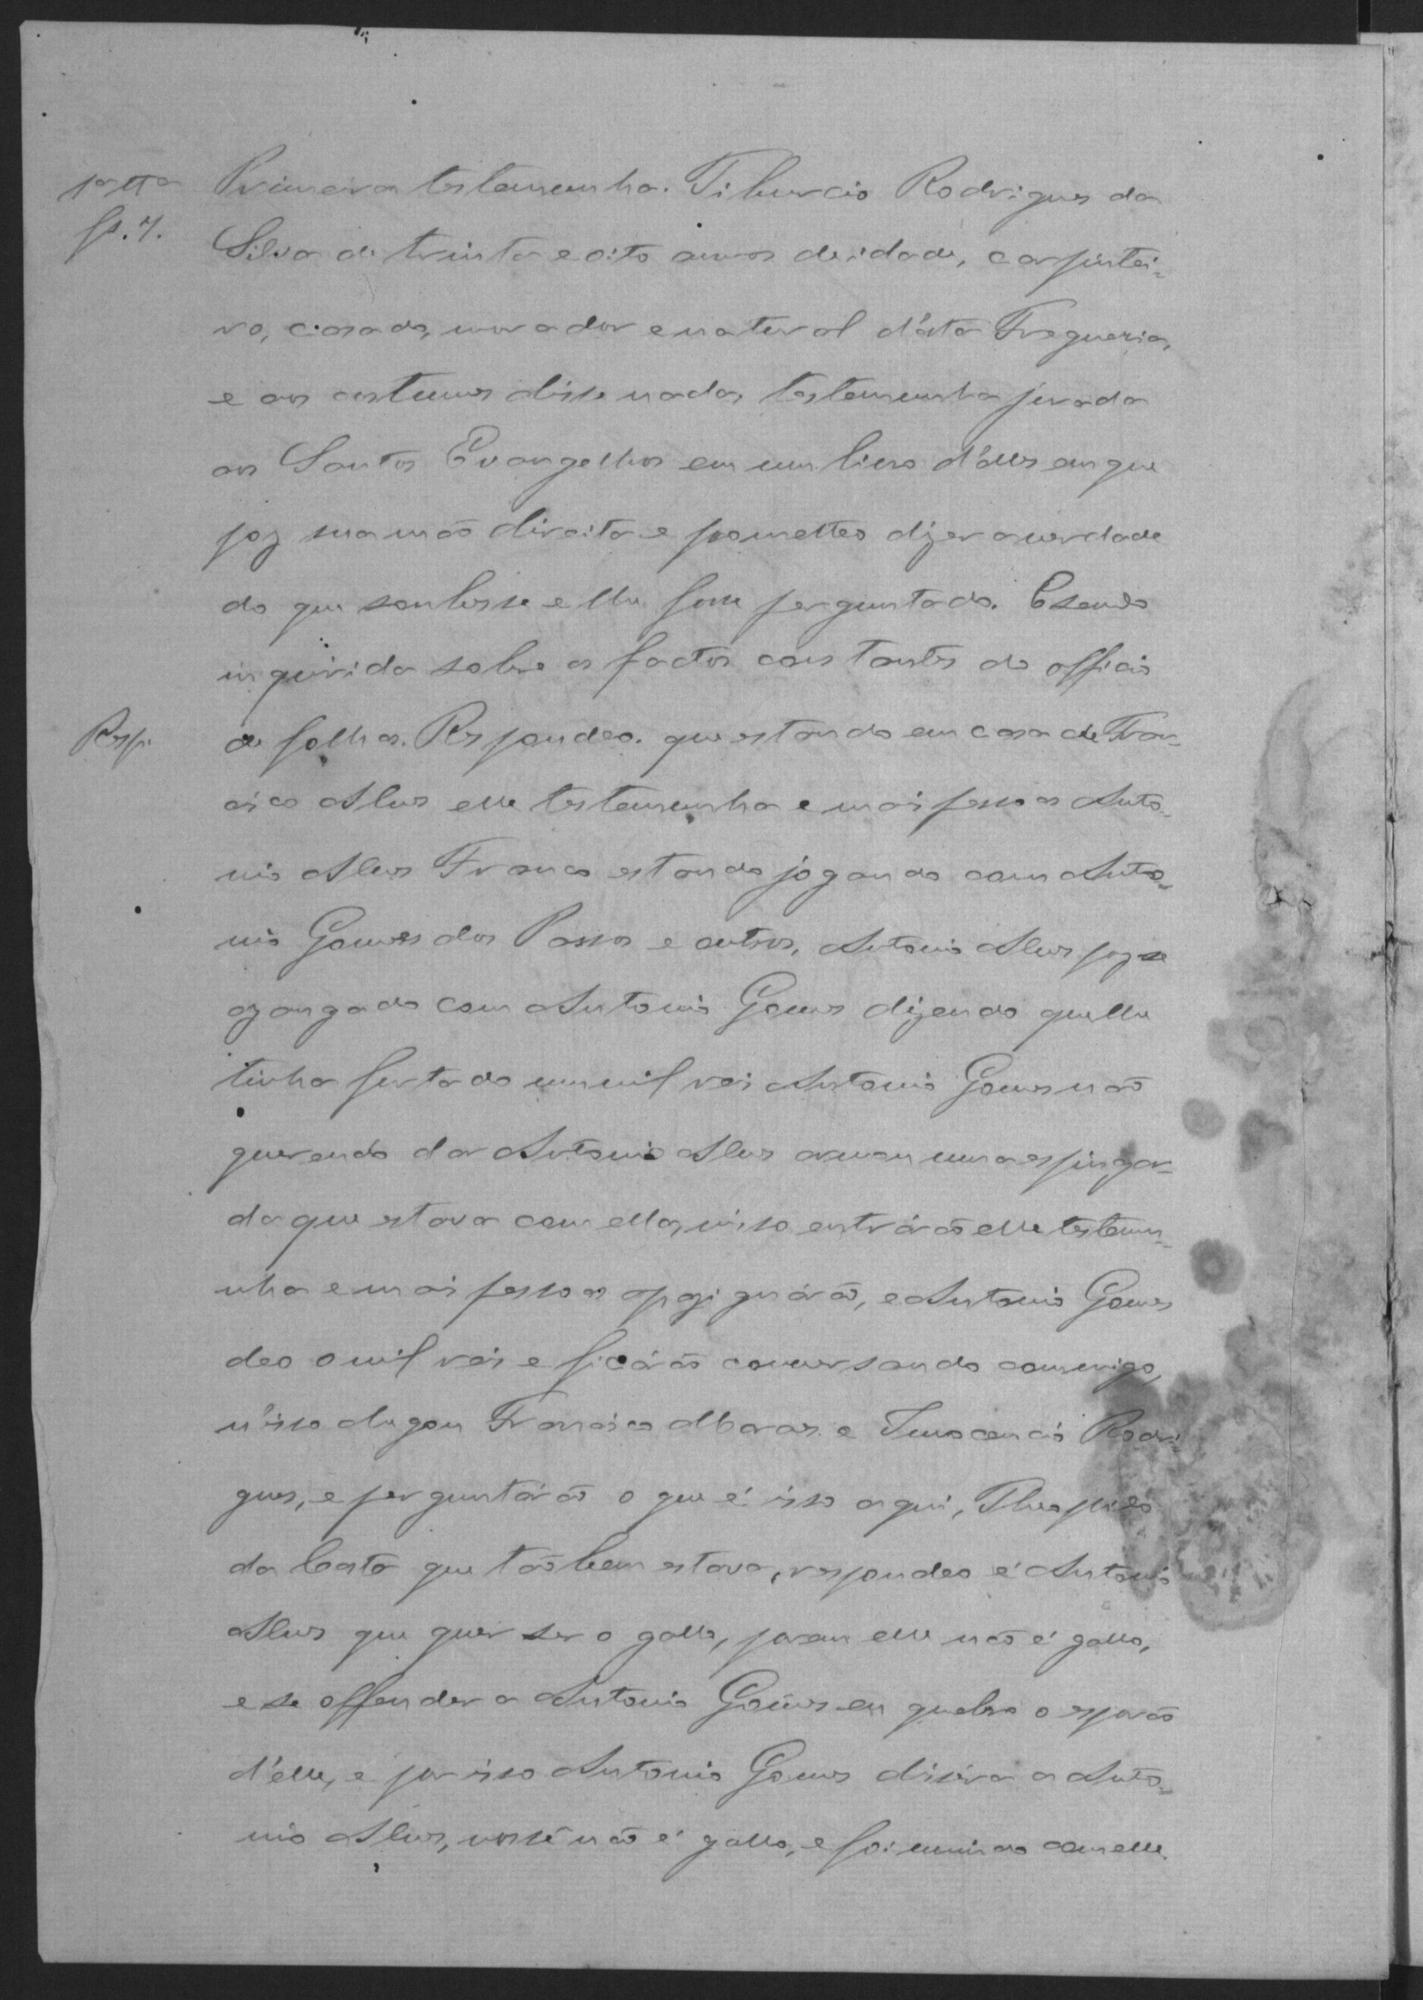 1ª ttª
fl. 7.
Primeira testemunha. Tiburcio Rodrigues da
Silva de trinta e oito annos de idade, carpintei-
ro, casado, morador e natural d'ésta Freguesia,
e aos costumes disse nada, testemunha jurada
aos Santos Evangelhos em um livro d'elles em que
poz sua mão direita e prometteo dizer a verdade
do que soubesse e lhe fosse perguntado. E sendo
inquirida sobre os factos constantes do officio
Resp.
de folhas. Respondeo. que estando em casa de Fran-
cisco Alves elle testemunha e mais pessoas Anto-
nio Alves Franco estando jogando com Anto-
nio Gomes dos Passos e outros, Antonio Alves poz-se
azangado com Antonio Gomes dizendo que lhe
tinha furtado um mil reis Antonio Gomes não
querendo dar Antonio Alves armou uma espingar-
da que estava com ella, n'isso entrárão elle testemu-
nha e mais pessoas apaziguárão, e Antonio Gomes
deo o mil reis e ficárão conversando comigo,
n'isso chegou Francisco e Innocencio Rodri-
gues, e perguntárão o que é isso aqui, Theophilo
da Costa que tãobem estava, respondeo é Antonio
Alves que quer ser o gallo, porem elle não é gallo,
e se offender a Antonio Gomes eu quebro o esporão
d'elle, e por isso Antonio Gomes disséra a Anto-
nio Alves, vossê não é gallo, e foi com elle.